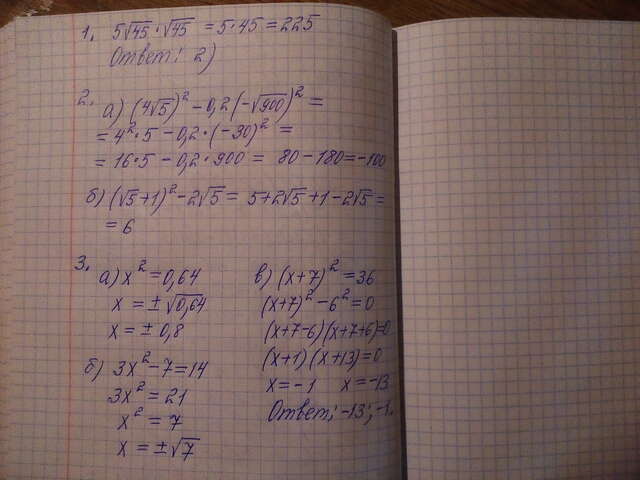 1. 5√45 · √45 = 5·45 = 225
Ответ: 2)
2. а) (4√5)² - 0,2(-√900)² =
= 4²·5 - 0,2·(-30)² =
= 16·5 - 0,2·900 = 80 - 180 = -100
б) (√5+1)² - 2√5 = 5+2√5+1-2√5 =
= 6
3.
а) x² = 0,64
x = ±√0,64
x = ± 0,8
б) 3x² - 7 = 14
3x² = 21
x² = 7
x = ±√7
в) (x+7)² = 36
(x+7)² - 6² = 0
(x+7-6)(x+7+6)=0
(x+1)(x+13)=0
x = -1 x = -13
Ответ: -13; -1.